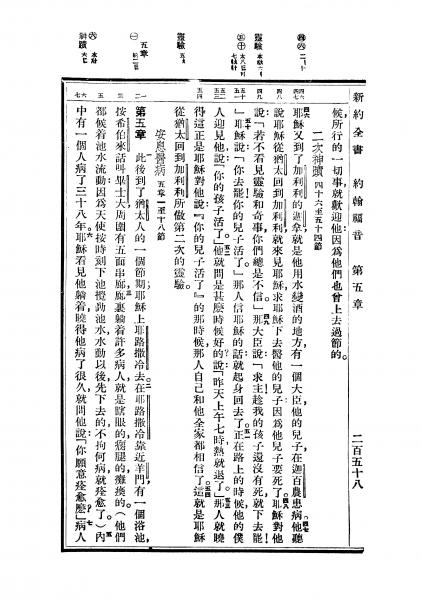 新約全書 約翰福音 第五章 二百五十八
候所行的一切事就歡迎他因爲他們也曾上去過節的。
二次神蹟 四十六至五十四節
耶穌又到了加利利的迦拿就是他用水變酒的地方有一個大臣他的兒子在迦百農患病他聽
說耶穌從猶太回到加利利就來見耶穌求耶穌下去醫他的兒子因爲他兒子要死了耶穌對他
說「若不看見靈驗和奇事你們總是不信」那大臣說「求主趁我的孩子還沒有死就下去罷
」耶穌說「你去罷你的兒子活了」那人信耶穌的話就起身回去了正在路上的時候他的僕
人迎見他說「你的孩子活了」他就問是甚麼時候好的說「昨天上午七時熱就退了」那人就曉
得這正是耶穌對他說『你的兒子活了』的那時候那人自己和他全家都相信了這就是耶穌
從猶太回到加利利所做第二次的靈驗。
安息醫病 五章一至十八節
第五章 此後到了猶太人的一個節期耶穌上耶路撒冷去在耶路撒冷靠近羊門有一個浴池
按希伯來話叫畢士大周圍有五面串廊廊裏躺着許多病人就是瞎眼的瘸腿的癱瘓的(他們
都候着池水流動因爲天使按時刻下池攪動池水水動以後先下去的不拘何病就痊愈了)內
中有一個人病了三十八年。耶穌看見他躺着曉得他病了很久就問他說「你願意痊愈麼」病人